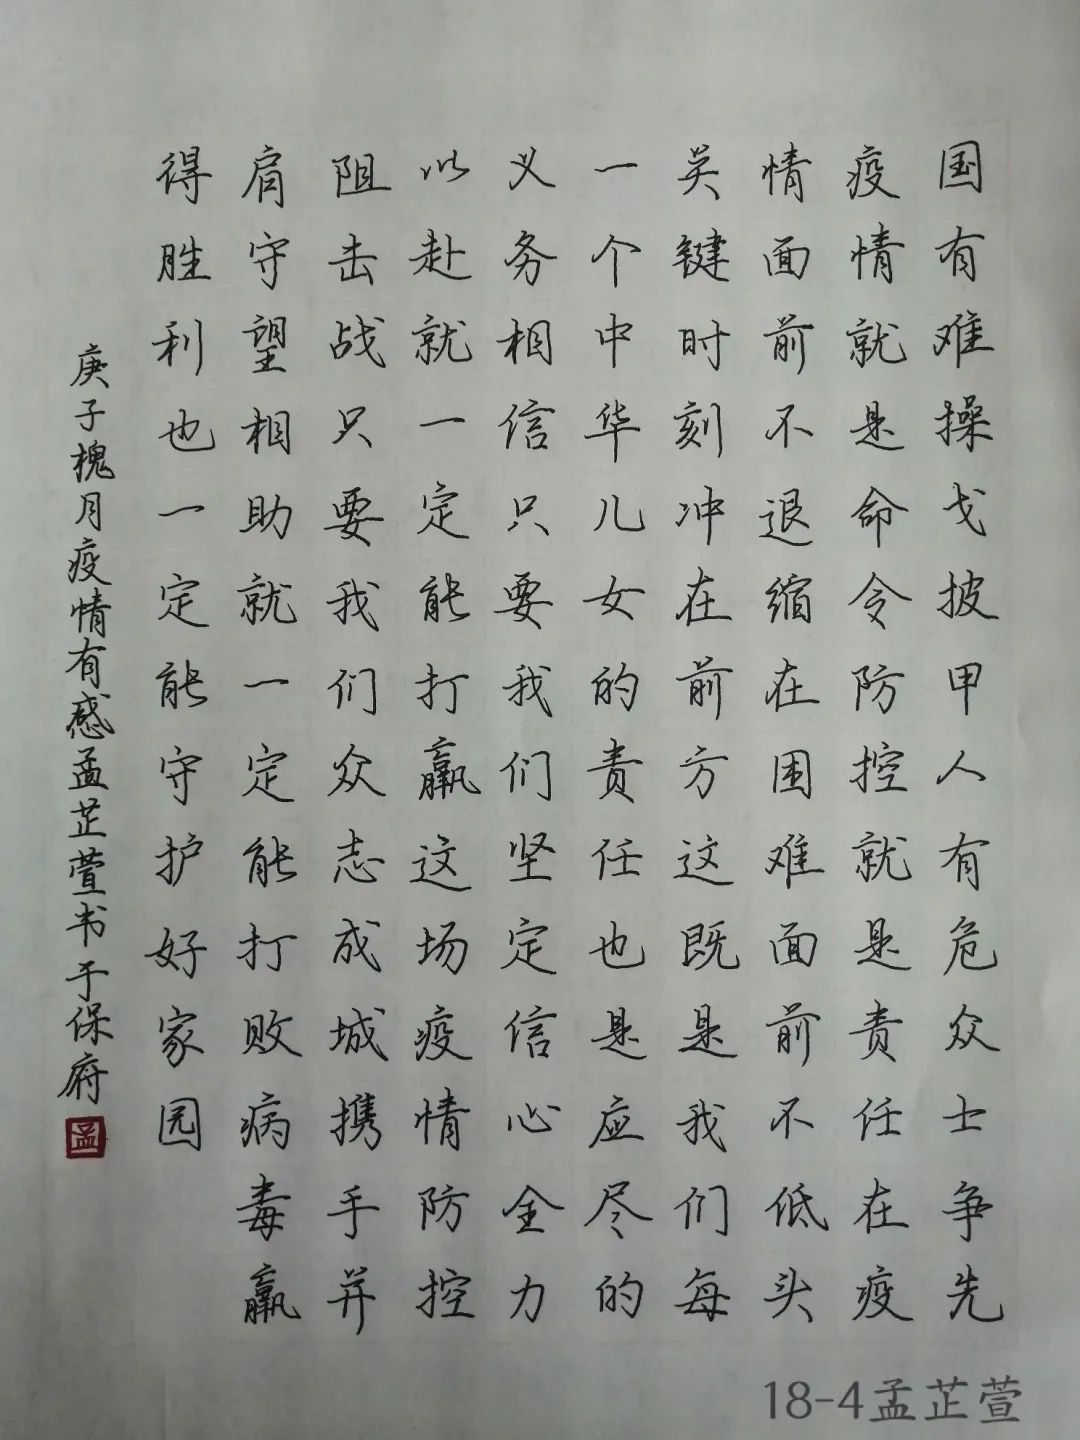 国有难操戈披甲人有危众士争先
疫情就是命令防控就是责任在疫
情面前不退缩在困难面前不低头
关键时刻冲在前方这既是我们每
一个中华儿女的责任也是应尽的
义务相信只要我们坚定信心全力
以赴就一定能打赢这场疫情防控
阻击战只要我们众志成城携手并
肩守望相助就一定能打败病毒赢
得胜利也一定能守护好家园
庚子槐月疫情有感孟芷萱书于保府
孟
18-4孟芷萱